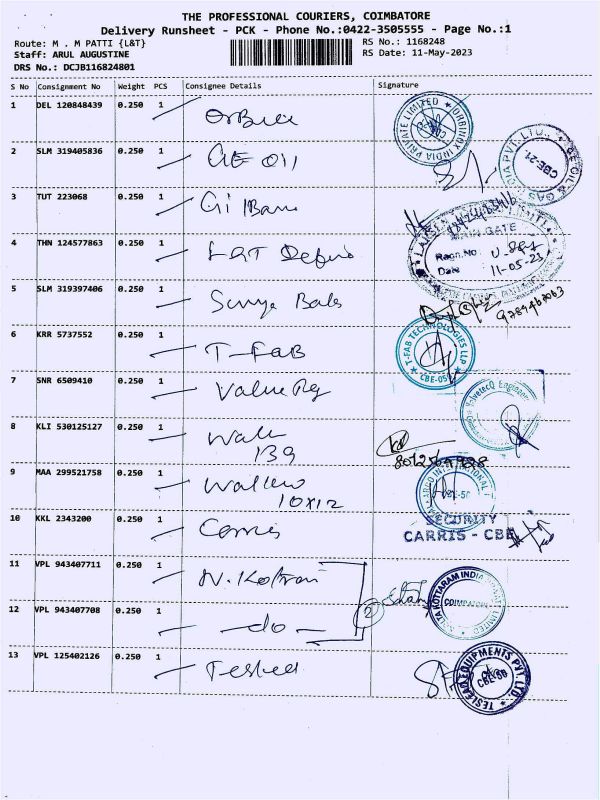 THE PROFESSIONAL COURIERS, COIMBATORE
Delivery Runsheet - PCK - Phone No.:0422-3505555 - Page No.:1
Route: M . M PATTI {L&T}
RS No.: 1168248
Staff: ARUL AUGUSTINE
RS Date: 11-May-2023
DRS No.: DCJB116824801
S No Consignment No Weight PCS Consignee Details Signature
1 DEL 120848439 0.250 1
ORBINOX INDIA PRIVATE LIMITED
2 SLM 319405836 0.250 1 GE Oil
CBE-21
3 TUT 223068 0.250 1
MAIN GATE
Regn.No
Date 11-05-23
4 THN 124577863 0.250 1 L&T Defence
5 SLM 319397406 0.250 1 Surya Balls
6 KRR 5737552 0.250 1 T-FAB
T-FAB TECHNOLOGIES LLP
CBE-05
7 SNR 6509410 0.250 1
8 KLI 530125127 0.250 1
139
9 MAA 299521758 0.250 1
10x12
10 KKL 2343200 0.250 1 Carris
SECURITY
CARRIS - CBE
11 VPL 943407711 0.250 1 N. Kottram
2
KOTTARAM INDIA PRIVATE LIMITED
COIMBATORE
12 VPL 943407708 0.250 1 - do -
13 VPL 125402126 0.250 1 Teslead
TESLEAD EQUIPMENTS PVT. LTD.